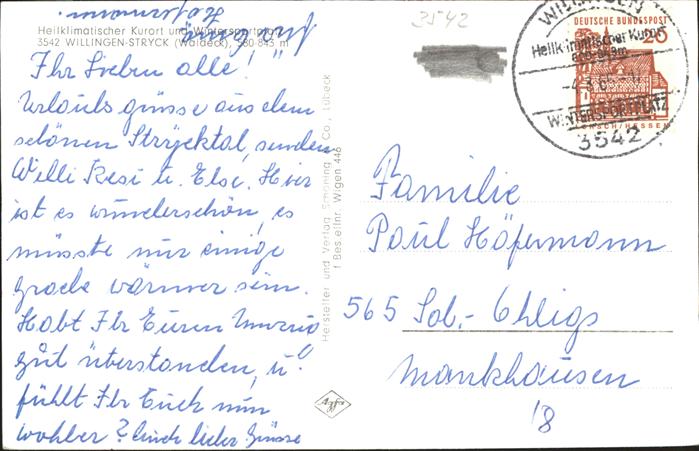 Heilklimatischer Kurort und Wintersportplatz
3542 WILLINGEN-STRYCK (Waldeck), 560-843 m
Ihr Lieben alle!
Urlaubsgrüsse aus dem
schönen Strycktal, senden
Willi Resi u. Else. Hier
ist es wunderschön, es
müsste nur einige
grade wärmer sein.
Habt Ihr Euren Umzug
gut überstanden, u.
fühlt Ihr Euch nun
wohler? Auch lieber Grüsse
Hersteller und Verlag Schöning & Co., Lübeck
Bestellnr. Wigen 446
Agfa
3542
DEUTSCHE BUNDESPOST
20
LORSCH/HESSEN
WILLINGEN
Heilklimatischer Kurort
WINTERSPORTPLATZ
3542
Familie
Paul Höfermann
565 Sol.-Ohligs
Mankhausen
18